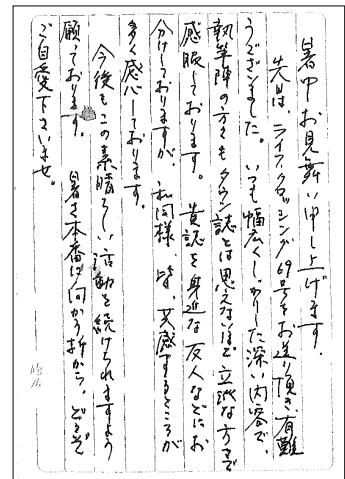 暑中お見舞い申し上げます。
先日は、ライフ・クロッシング69号をお送り頂き、有難
うございました。いつも幅広くしっかりした深い内容で、
執筆陣の方々もタウン誌とは思えないほど立派な方々で
感服しております。貴誌を身近な友人などにお
分けしておりますが、私同様、皆、共感するところが
多く感心しております。
今後もこの素晴らしい活動を続けられますよう
願っております。暑さ本番に向かう折から、どうぞ
ご自愛下さいませ。